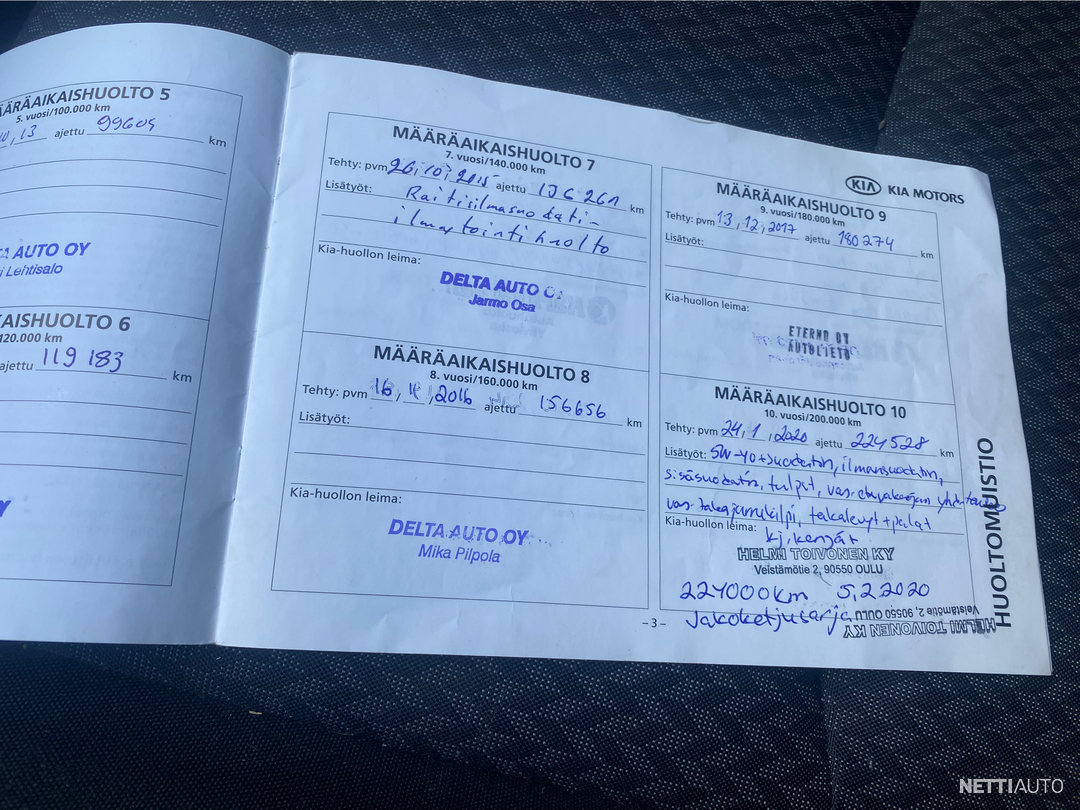 ÄÄRÄAIKAISHUOLTO 5
5. vuosi/100.000 km
10,13 ajettu 99609 km
TA AUTO OY
i Lehtisalo
KAISHUOLTO 6
120.000 km
ajettu 119 183 km
MÄÄRÄAIKAISHUOLTO 7
7. vuosi/140.000 km
Tehty: pvm 26,10,2015 ajettu 136 261 km
Lisätyöt: Raitisilmasuodati-
ilmastointihuolto
Kia-huollon leima:
DELTA AUTO O
Jarmo Osa
MÄÄRÄAIKAISHUOLTO 8
8. vuosi/160.000 km
Tehty: pvm 16, ,2016 ajettu 156656 km
Lisätyöt:
Kia-huollon leima:
DELTA AUTO OY
Mika Pilpola
– 3 –
KIA KIA MOTORS
MÄÄRÄAIKAISHUOLTO 9
9. vuosi/180.000 km
Tehty: pvm 13,12,2017 ajettu 180274 km
Lisätyöt:
Kia-huollon leima:
ETERNO OY
AUTOLIETO
MÄÄRÄAIKAISHUOLTO 10
10. vuosi/200.000 km
Tehty: pvm 24,1,2020 ajettu 224528 km
Lisätyöt: 5W-40+suodatin, ilmansuodatin,
sisäsuodatin, tulput, vas.
vas. takajarrukilpi, takalevyt+palat
Kia-huollon leima: kj.kengät
HELMI TOIVONEN KY
Veistämötie 2, 90550 OULU
224000km 5,2 2020
Jakoketjusarja
HELMI TOIVONEN KY
Veistämötie 2, 90550 OULU
HUOLTOMUISTIO
NETTIAUTO